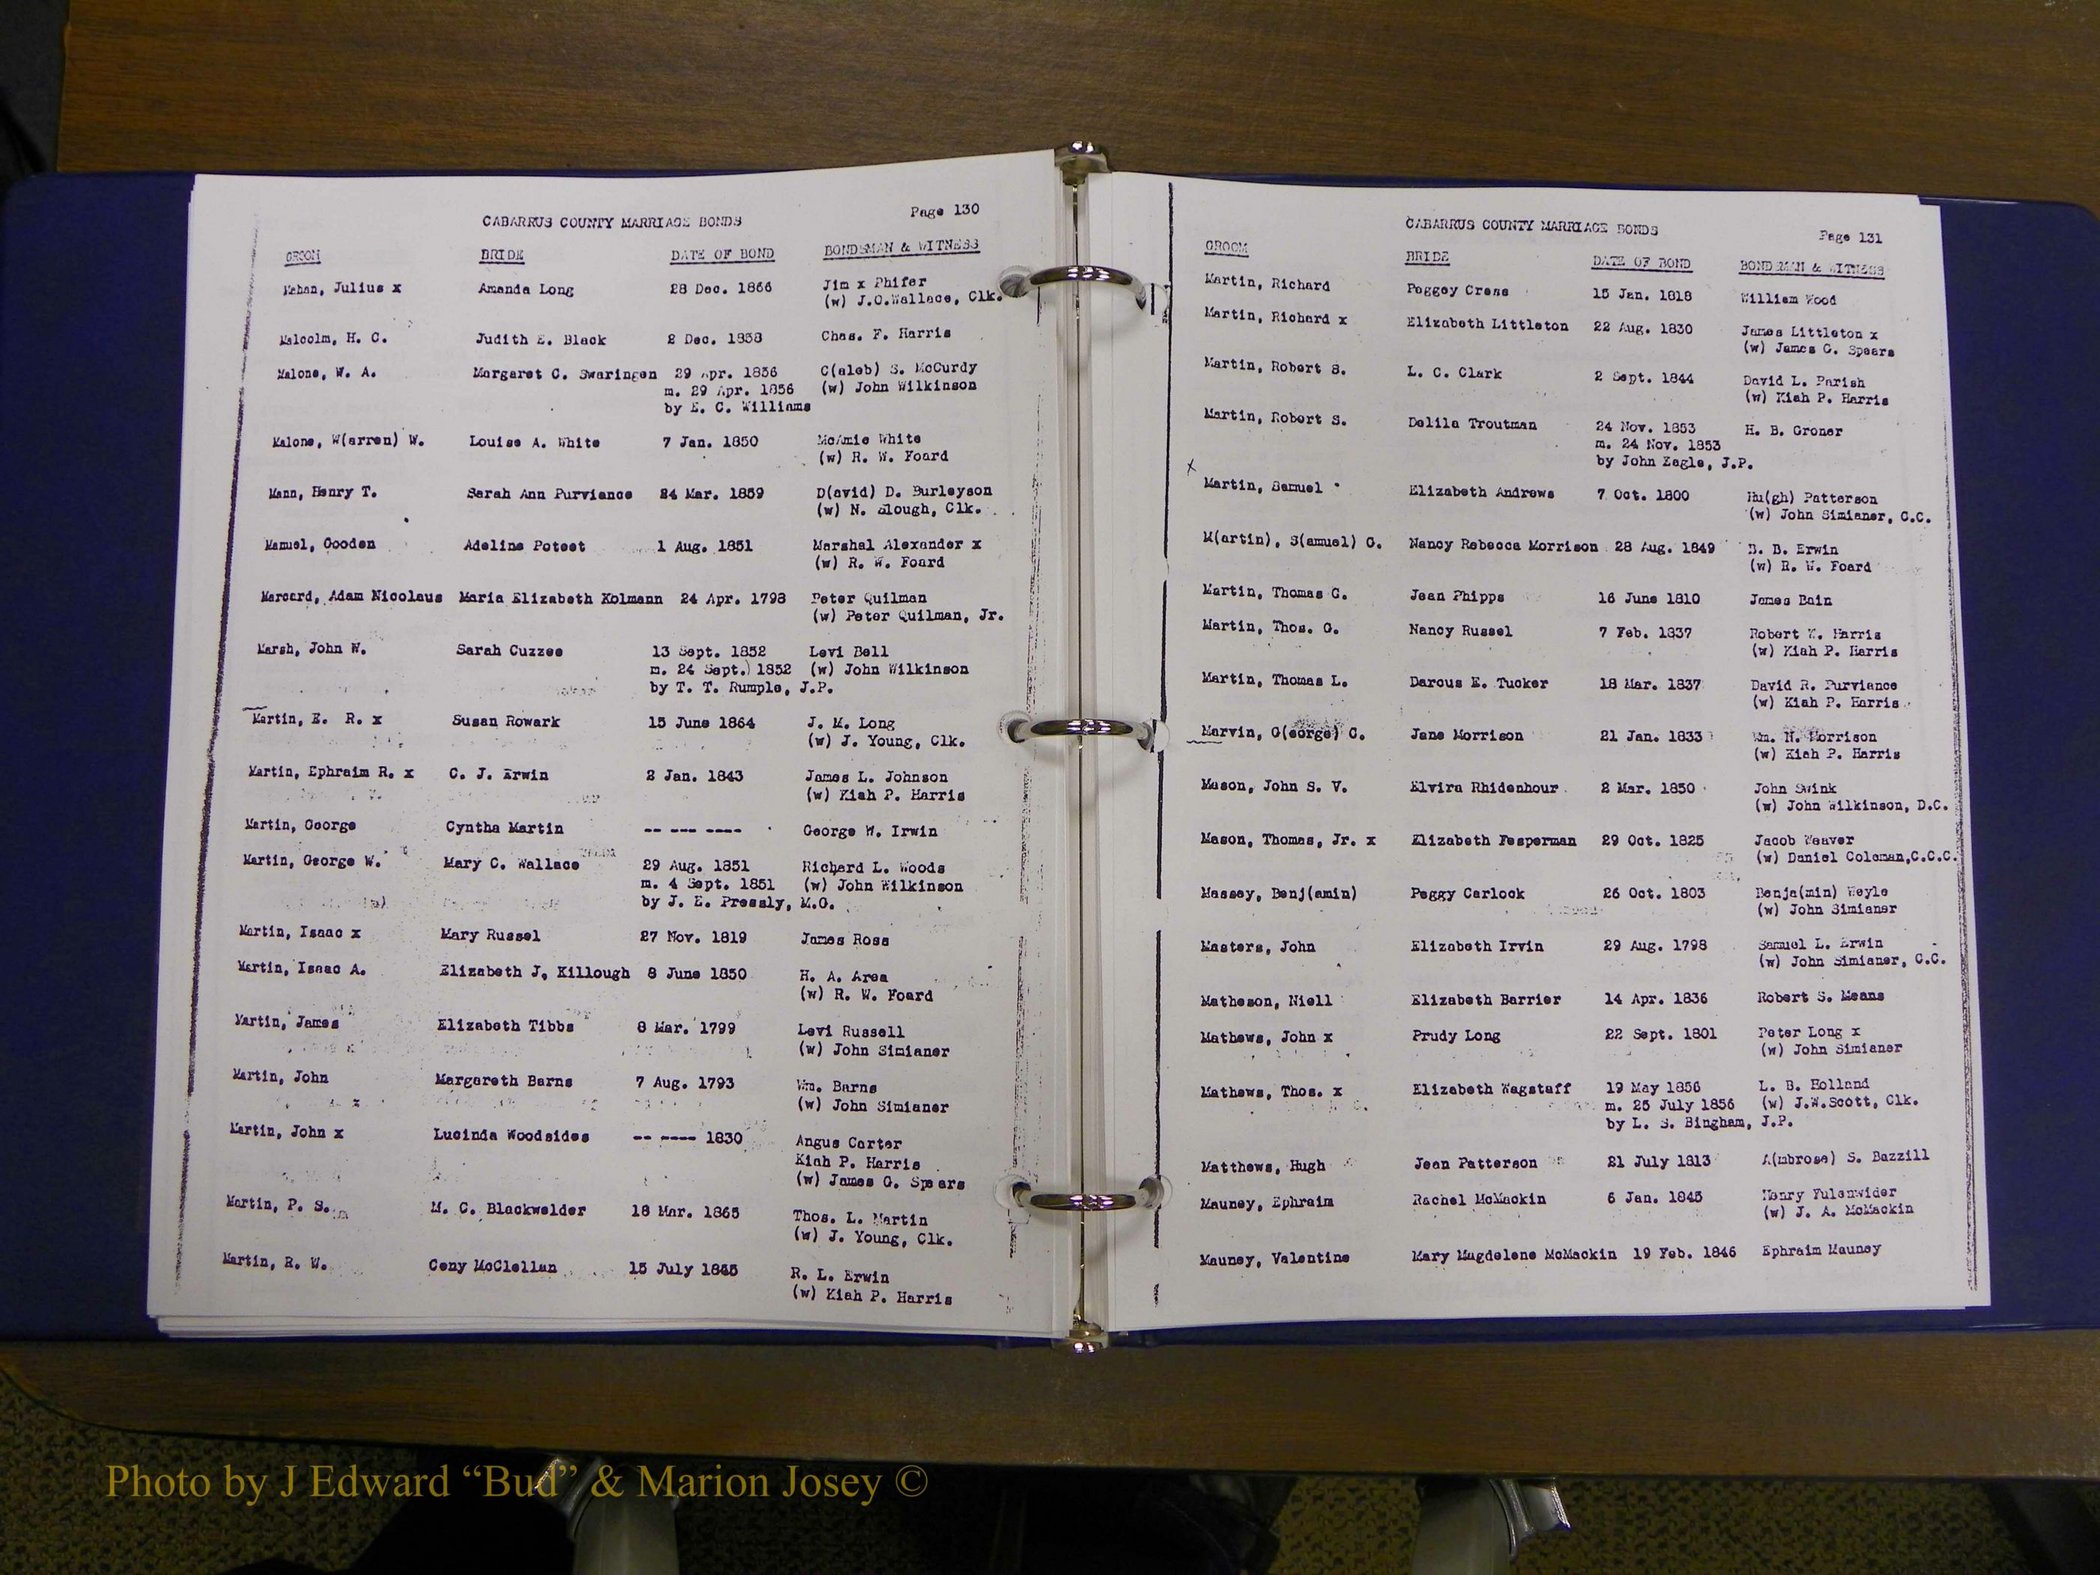 Page 130
CABARRUS COUNTY MARRIAGE BONDS
GROOM BRIDE DATE OF BOND BONDSMAN & WITNESS
Mahan, Julius x Amanda Long 28 Dec. 1866 Jim x Phifer
(w) J.O.Wallace, Clk.
Malcolm, H. C. Judith E. Black 2 Dec. 1858 Chas. F. Harris
Malone, W. A. Margaret C. Swaringen 29 Apr. 1856 C(aleb) S. McCurdy
m. 29 Apr. 1856 (w) John Wilkinson
by E. C. Williams
Malone, W(arren) W. Louise A. White 7 Jan. 1850 McAmie White
(w) R. W. Foard
Mann, Henry T. Sarah Ann Purviance 24 Mar. 1859 D(avid) D. Burleyson
(w) N. Slough, Clk.
Manuel, Gooden Adeline Poteet 1 Aug. 1851 Marshal Alexander x
(w) R. W. Foard
Marcard, Adam Nicolaus Maria Elizabeth Kolmann 24 Apr. 1798 Peter Quilman
(w) Peter Quilman, Jr.
Marsh, John W. Sarah Cuzzee 13 Sept. 1852 Levi Bell
m. 24 Sept.) 1852 (w) John Wilkinson
by T. T. Rumple, J.P.
Martin, E. R. x Susan Rowark 15 June 1864 J. M. Long
(w) J. Young, Clk.
Martin, Ephraim R. x C. J. Erwin 2 Jan. 1843 James L. Johnson
(w) Kiah P. Harris
Martin, George Cyntha Martin -- --- ---- George W. Irwin
Martin, George W. Mary C. Wallace 29 Aug. 1851 Richard L. Woods
m. 4 Sept. 1851 (w) John Wilkinson
by J. E. Pressly, M.G.
Martin, Isaac x Mary Russel 27 Nov. 1819 James Ross
Martin, Isaac A. Elizabeth J, Killough 8 June 1850 H. A. Area
(w) R. W. Foard
Martin, James Elizabeth Tibbs 8 Mar. 1799 Levi Russell
(w) John Simianer
Martin, John Margareth Barns 7 Aug. 1793 Wm. Barns
(w) John Simianer
Martin, John x Lucinda Woodsides -- ---- 1830 Angus Carter
Kiah P. Harris
(w) James G. Spears
Martin, P. S. M. C. Blackwelder 18 Mar. 1865 Thos. L. Martin
(w) J. Young, Clk.
Martin, R. W. Ceny McClellan 15 July 1845 R. L. Erwin
(w) Kiah P. Harris
CABARRUS COUNTY MARRIAGE BONDS
Page 131
GROOM BRIDE DATE OF BOND BONDSMAN & WITNESS
Martin, Richard Peggey Cress 15 Jan. 1818 William Wood
Martin, Richard x Elizabeth Littleton 22 Aug. 1830 James Littleton x
(w) James G. Spears
Martin, Robert S. L. C. Clark 2 Sept. 1844 David L. Parish
(w) Kiah P. Harris
Martin, Robert S. Delila Troutman 24 Nov. 1853 H. B. Groner
m. 24 Nov. 1853
by John Eagle, J.P.
x
Martin, Samuel Elizabeth Andrews 7 Oct. 1800 Hu(gh) Patterson
(w) John Simianer, C.C.
M(artin), S(amuel) G. Nancy Rebecca Morrison 28 Aug. 1849 B. B. Erwin
(w) R. W. Foard
Martin, Thomas G. Jean Phipps 16 June 1810 James Bain
Martin, Thos. G. Nancy Russel 7 Feb. 1837 Robert W. Harris
(w) Kiah P. Harris
Martin, Thomas L. Darcus E. Tucker 18 Mar. 1837 David R. Purviance
(w) Kiah P. Harris
Marvin, G(eorge) C. Jane Morrison 21 Jan. 1833 Wm. N. Morrison
(w) Kiah P. Harris
Mason, John S. V. Elvira Rhidenhour 2 Mar. 1850 John Swink
(w) John Wilkinson, D.C.
Mason, Thomas, Jr. x Elizabeth Fesperman 29 Oct. 1825 Jacob Weaver
(w) Daniel Coleman,C.C.C.
Massey, Benj(amin) Peggy Carlock 26 Oct. 1803 Benja(min) Weyle
(w) John Simianer
Masters, John Elizabeth Irvin 29 Aug. 1798 Samuel L. Erwin
(w) John Simianer, C.C.
Matheson, Niell Elizabeth Barrier 14 Apr. 1836 Robert S. Means
Mathews, John x Prudy Long 22 Sept. 1801 Peter Long x
(w) John Simianer
Mathews, Thos. x Elizabeth Wagstaff 19 May 1856 L. B. Holland
m. 25 July 1856 (w) J.W.Scott, Clk.
by L. S. Bingham, J.P.
Matthews, Hugh Jean Patterson 21 July 1813 A(mbrose) S. Bazzill
Mauney, Ephraim Rachel McMackin 6 Jan. 1845 Henry Fulenwider
(w) J. A. McMackin
Mauney, Valentine Mary Magdelene McMackin 19 Feb. 1846 Ephraim Mauney
Photo by J Edward “Bud” & Marion Josey ©